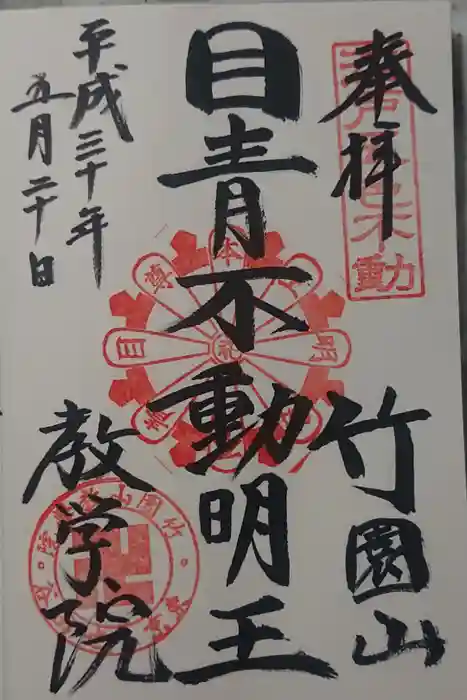 奉拝
竹園山
目青不動明王
平成三十年
五月二十日
教学院